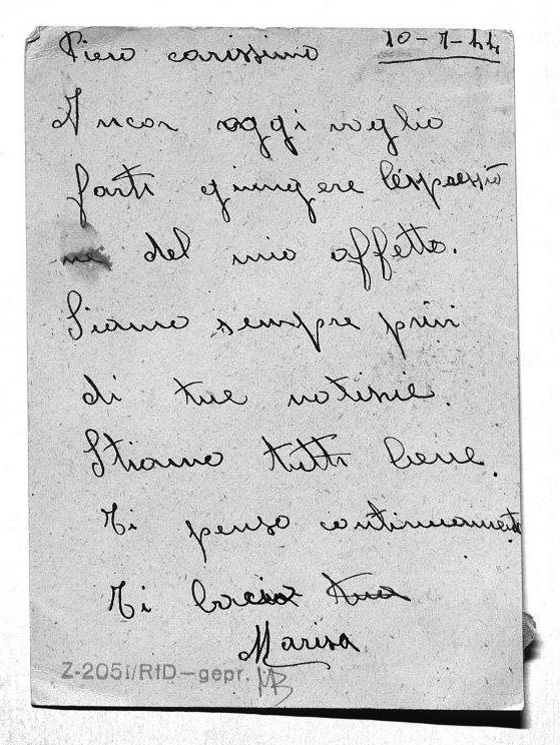 Piero carissimo 10-7-44
Ancor oggi voglio
farti giungere l'espressio
ne del mio affetto.
Siamo sempre privi
di tue notizie.
Stiamo tutti bene.
Ti penso continuamente
Ti bacia tua
Marisa
Z-205i/RfD-gepr.